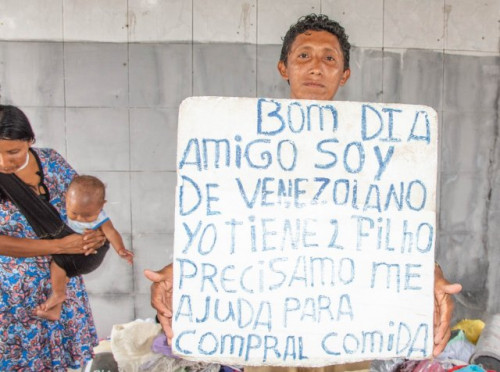 BOM DIA
AMIGO SOY
DE VENEZOLANO
YO TIENE 2 FILHO
PRECISAMO ME
AJUDA PARA
COMPRAL COMIDA